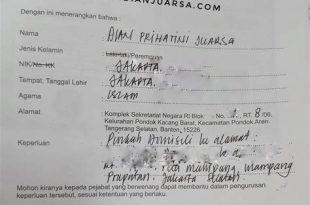 DIANJUARSA.COM
Dengan ini menerangkan bahwa :
Nama DIAN PRIHATINI JUARSA
Jenis Kelamin Laki-laki/Perempuan
NIK/No. KK JAKARTA
Tempat, Tanggal Lahir JAKARTA
Agama ISLAM
Alamat Komplek Sekretariat Negara RI Blok No. RT. 8 /06,
Kelurahan Pondok Kacang Barat, Kecamatan Pondok Aren,
Tangerang Selatan, Banten, 15226
Keperluan Pindah Domisili ke alamat:
mampang, Mampang
Prapatan, Jakarta Selatan
Mohon kiranya kepada pejabat yang berwenang dapat membantu dalam pengurusan
keperluan tersebut, sesuai ketentuan yang berlaku.